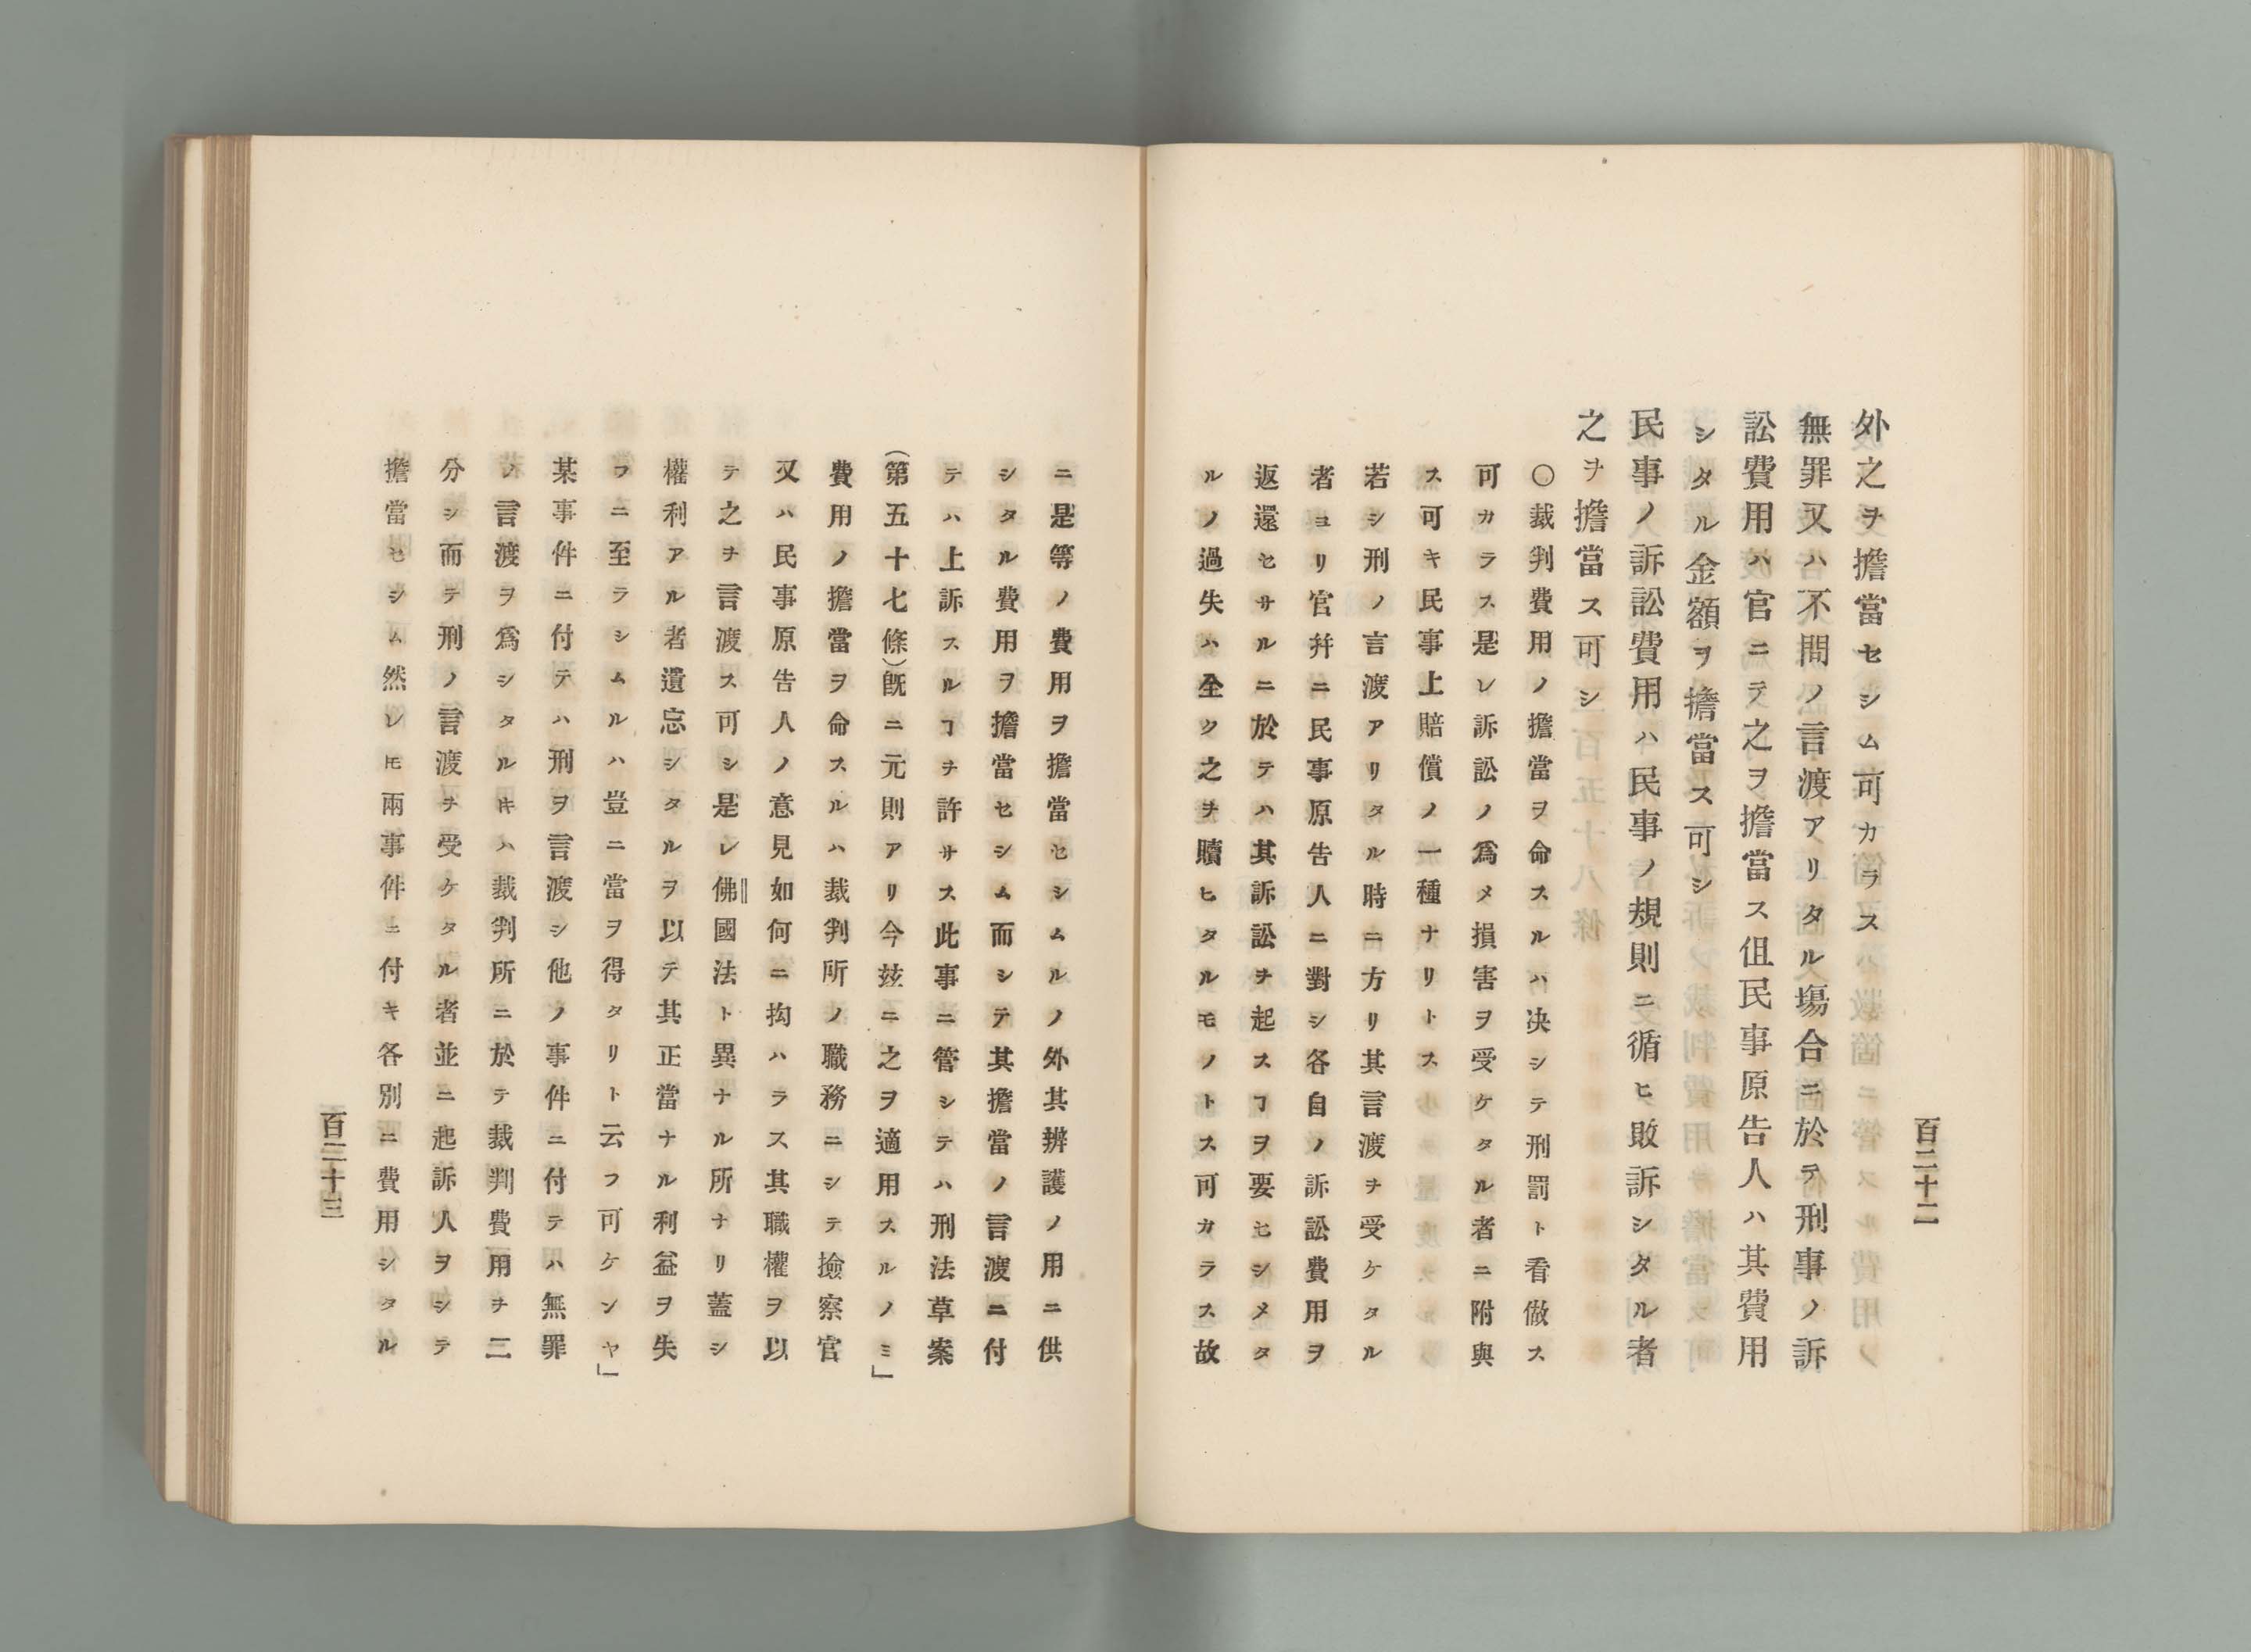 百二十二
外之ヲ擔當セシム可カラス
無罪又ハ不問ノ言渡アリタル塲合ニ於テ刑事ノ訴
訟費用ハ官ニテ之ヲ擔當ス伹民事原告人ハ其費用
シタル金額ヲ擔當ス可シ
民事ノ訴訟費用ハ民事ノ規則ニ循ヒ敗訴シタル者
之ヲ擔當ス可シ
〇裁判費用ノ擔當ヲ命スルハ决シテ刑罰ト看做ス
可カラス是レ訴訟ノ爲メ損害ヲ受ケタル者ニ附與
ス可キ民事上賠償ノ一種ナリトス
若シ刑ノ言渡アリタル時ニ方リ其言渡ヲ受ケタル
者ヨリ官幷ニ民事原告人ニ對シ各自ノ訴訟費用ヲ
返還セサルニ於テハ其訴訟ヲ起スヿヲ要セシメタ
ルノ過失ハ全ク之ヲ贖ヒタルモノトス可カラス故
ニ是等ノ費用ヲ擔當セシムルノ外其辨護ノ用ニ供
シタル費用ヲ擔當セシム而シテ其擔當ノ言渡ニ付
テハ上訴スルヿヲ許サス此事ニ管シテハ刑法草案
(第五十七條)既ニ元則アリ今玆ニ之ヲ適用スルノミ」
費用ノ擔當ヲ命スルハ裁判所ノ職務ニシテ撿察官
又ハ民事原告人ノ意見如何ニ拘ハラス其職權ヲ以
テ之ヲ言渡ス可シ是レ佛國法ト異ナル所ナリ蓋シ
權利アル者遺忘シタルヲ以テ其正當ナル利益ヲ失
フニ至ラシムルハ豈ニ當ヲ得タリト云フ可ケンヤ」
某事件ニ付テハ刑ヲ言渡シ他ノ事件ニ付テハ無罪
ノ言渡ヲ爲シタルキハ裁判所ニ於テ裁判費用ヲ二
分シ而テ刑ノ言渡ヲ受ケタル者並ニ起訴人ヲシテ
擔當セシム然レ𪜈兩事件ニ付キ各別ニ費用シタル
百二十三